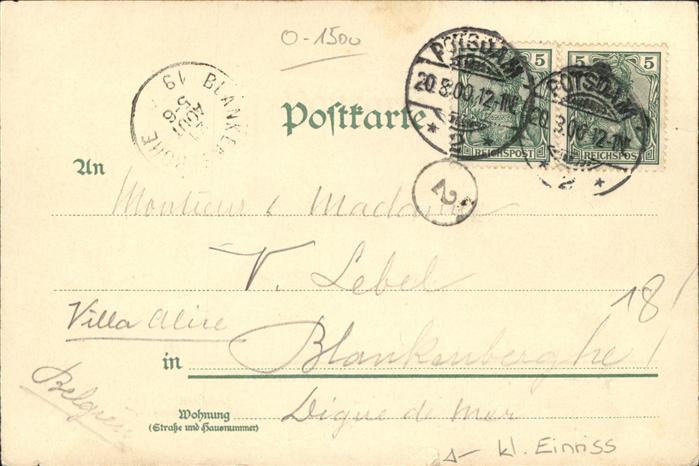 0-1500
POTSDAM
20.8.00.12-1N.
POTSDAM
20.8.00.12-1N.
2
5 5
REICHSPOST REICHSPOST
BLANKENBERGHE
AOUT
Postkarte
An
Monsieur & Madame
V. Lebel
Villa Alice
18
in
Blankenberghe
Belgien
Digue de Mer
Wohnung
(Straße und Hausnummer)
kl. Einriss